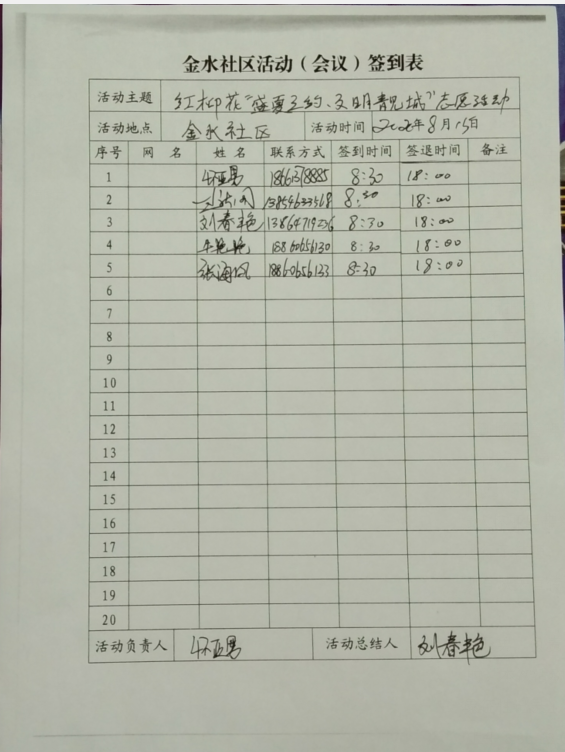 金水社区活动（会议）签到表
活动主题 红柳花“ 文明靓城”志愿活动
活动地点 金水社区 活动时间 2020年8月15日
序号 网 名 姓 名 联系方式 签到时间 签退时间 备注
1 8:30 18:00
2 13854633568 8:30 18:00
3 刘春艳 13864719236 8:30 18:00
4 18860656130 8:30 18:00
5 张海凤 18860656133 8:30 18:00
6
7
8
9
10
11
12
13
14
15
16
17
18
19
20
活动负责人 活动总结人 刘春艳